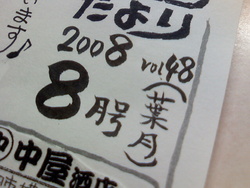 たより
2008 vol.48
8月号(葉月)
きます♪
中屋酒店